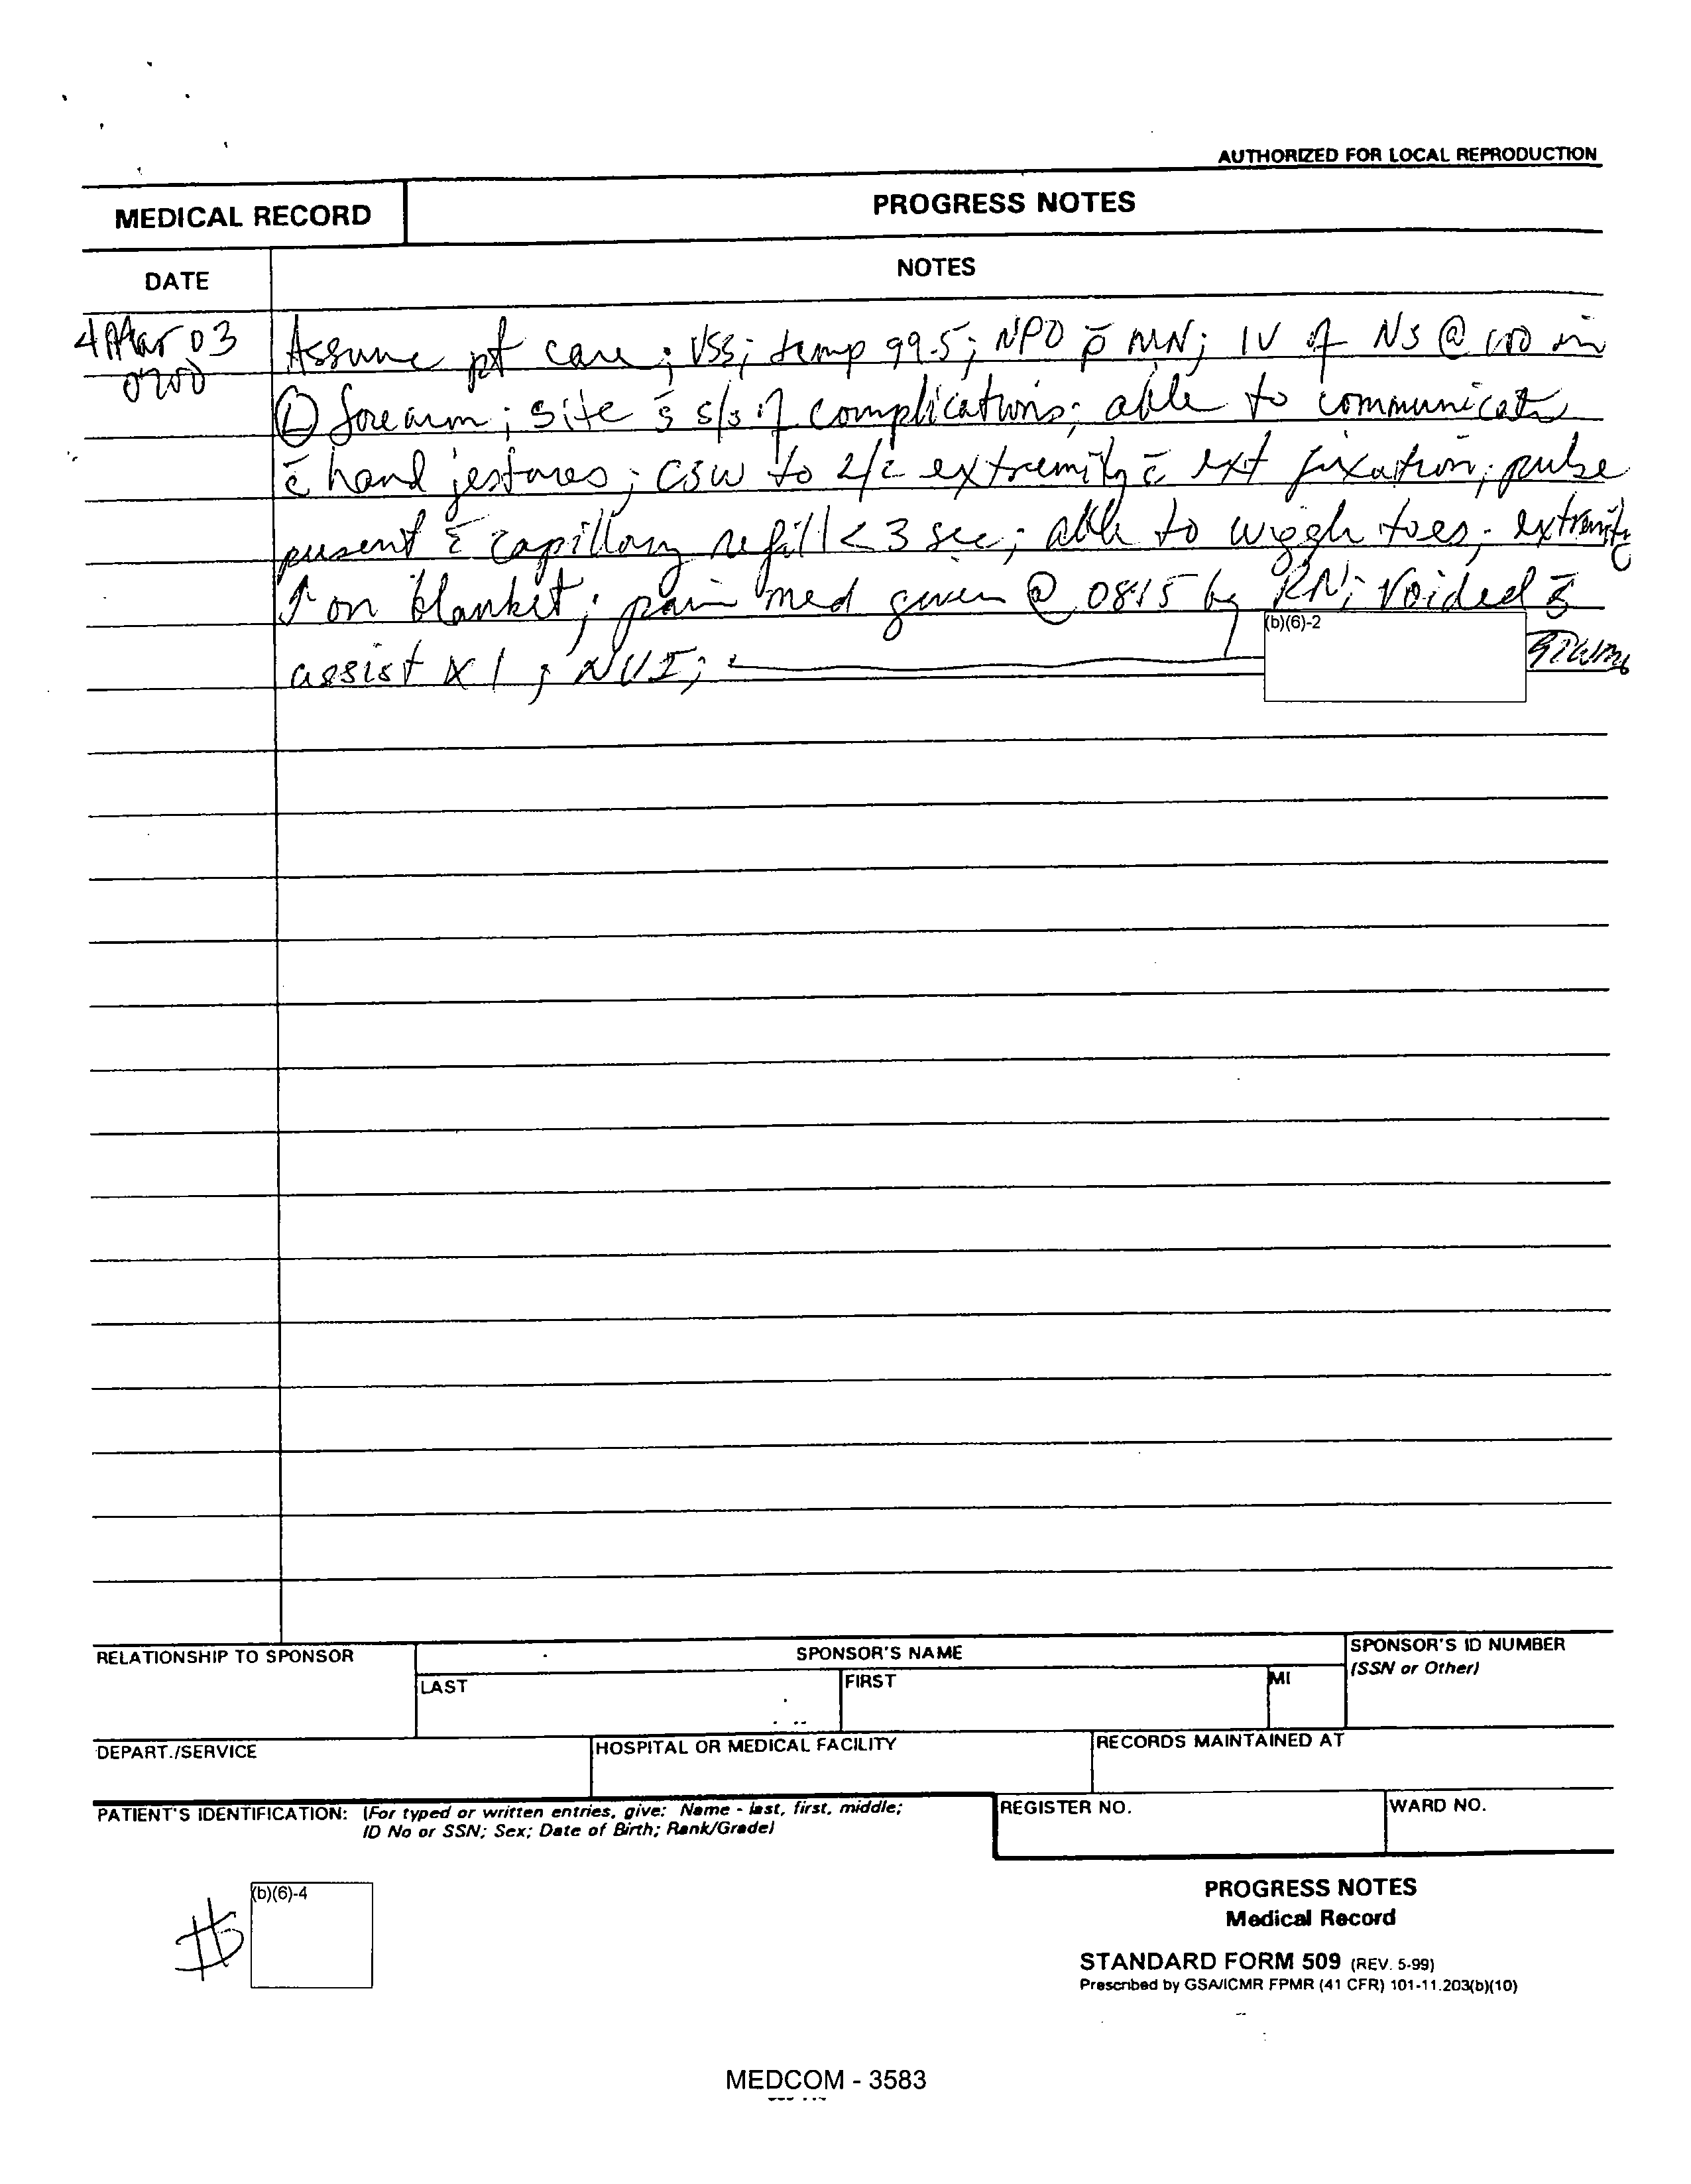 AUTHORIZED FOR LOCAL REPRODUCTION
MEDICAL RECORD
PROGRESS NOTES
DATE
NOTES
03
Assume pt care; VSS; temp 99.5; NPO p̄ MN; IV of NS @ 100 in
Ⓛ forearm; site s̄ s/s of complications; able to communicate
c̄ hand jestures; to extremity c̄ ext fixation; pulse
present c̄ capillary refill < 3 sec; able to wiggle toes; extremity
↑ on blanket; pain med given @ 0815 by RN; voided s̄
(b)(6)-2
assist x 1;
RELATIONSHIP TO SPONSOR
SPONSOR'S NAME
SPONSOR'S ID NUMBER
(SSN or Other)
LAST
FIRST
MI
DEPART./SERVICE
HOSPITAL OR MEDICAL FACILITY
RECORDS MAINTAINED AT
PATIENT'S IDENTIFICATION: (For typed or written entries, give: Name - last, first, middle;
ID No or SSN; Sex; Date of Birth; Rank/Grade)
REGISTER NO.
WARD NO.
#
(b)(6)-4
PROGRESS NOTES
Medical Record
STANDARD FORM 509 (REV. 5-99)
Prescribed by GSA/ICMR FPMR (41 CFR) 101-11.203(b)(10)
MEDCOM - 3583